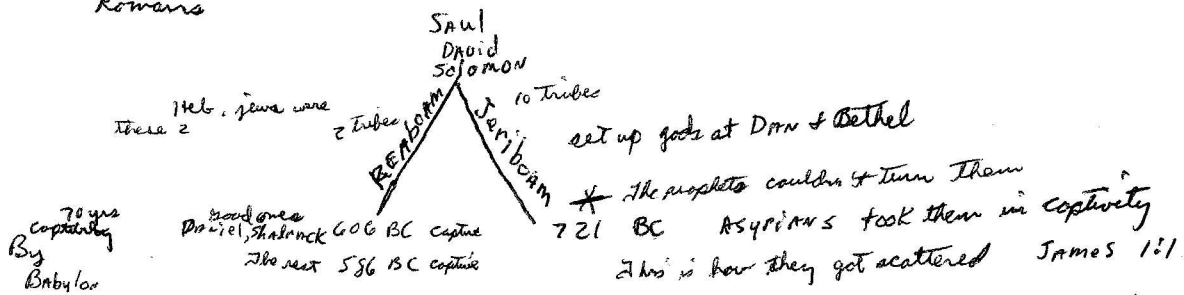 Romans
SAUL
DAVID
SOLOMON
Heb. jews were
these 2
2 tribes
REABOAM
Jeriboam
10 Tribes
set up gods at DAN & Bethel
* The prophets couldn't turn them
70 yrs
captivity
By
Babylon
good ones
Daniel, Shadrack 606 BC captive
The rest 586 BC captive
721 BC ASYRIANS took them in captivity
This is how they got scattered JAMES 1:1